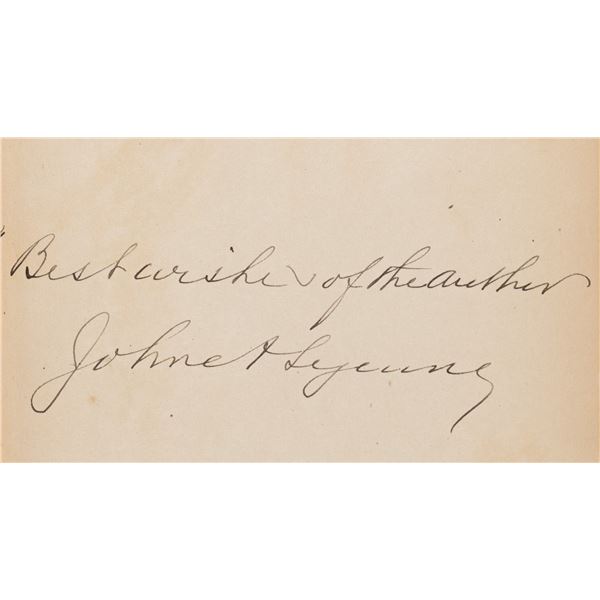 Best wishes of the author
John A Lejeune